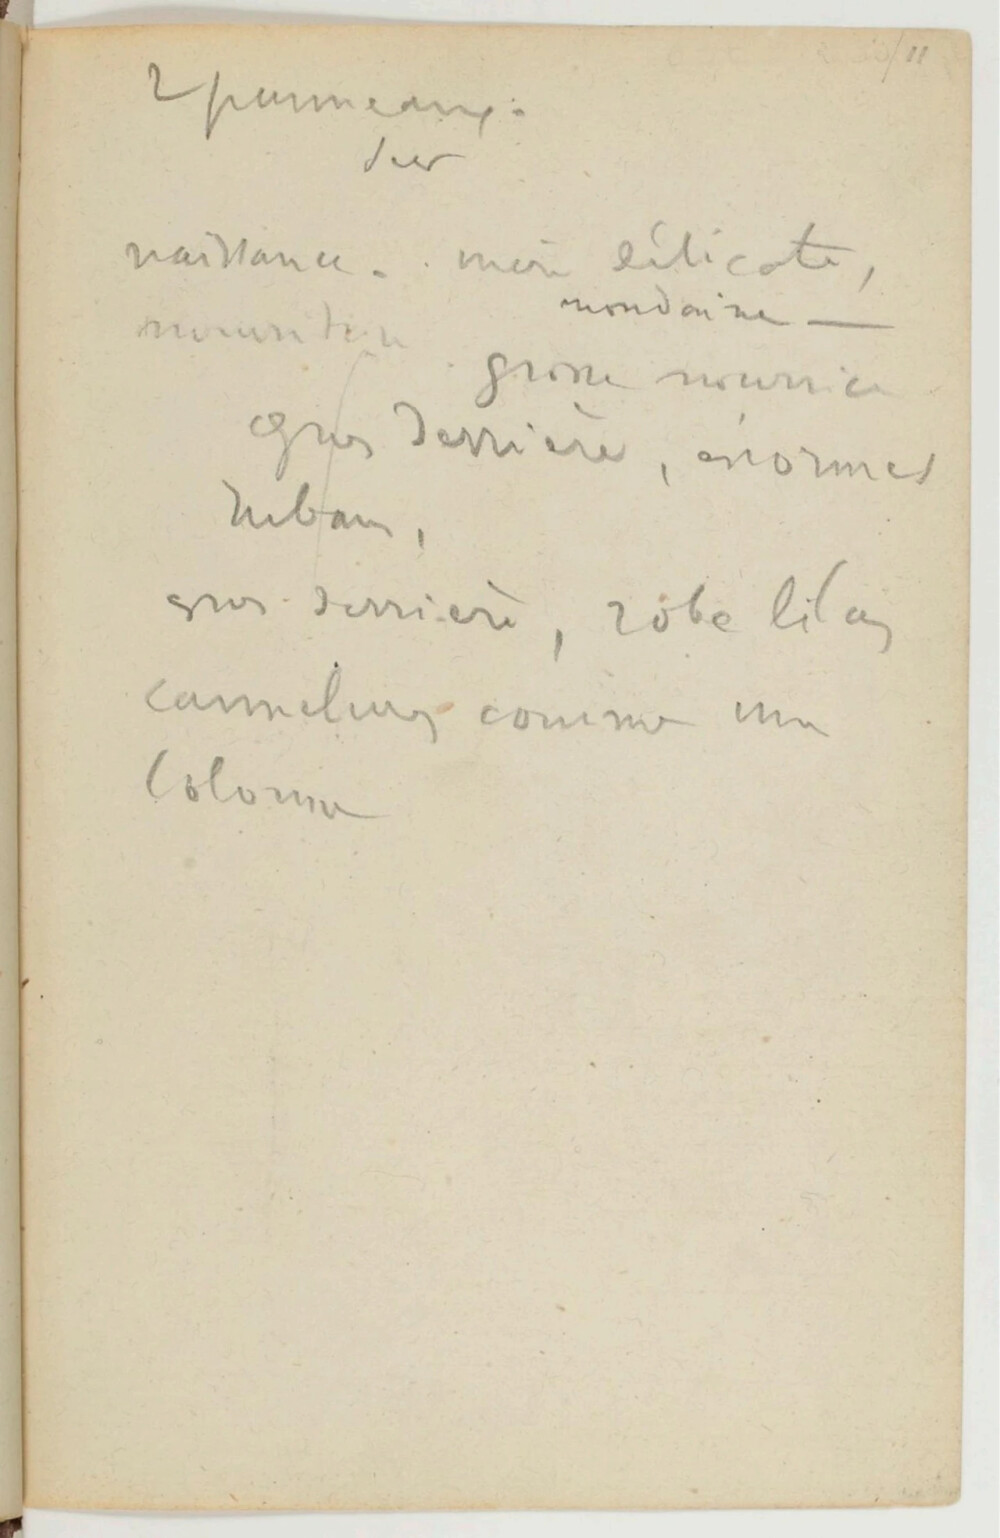 11
2 panneaux.
sur
naissance. mère délicate,
mondaine —
grosse nourrice
gros derrière, énormes
rubans,
gros derrière, robe lilas
cannelures comme une
colonne